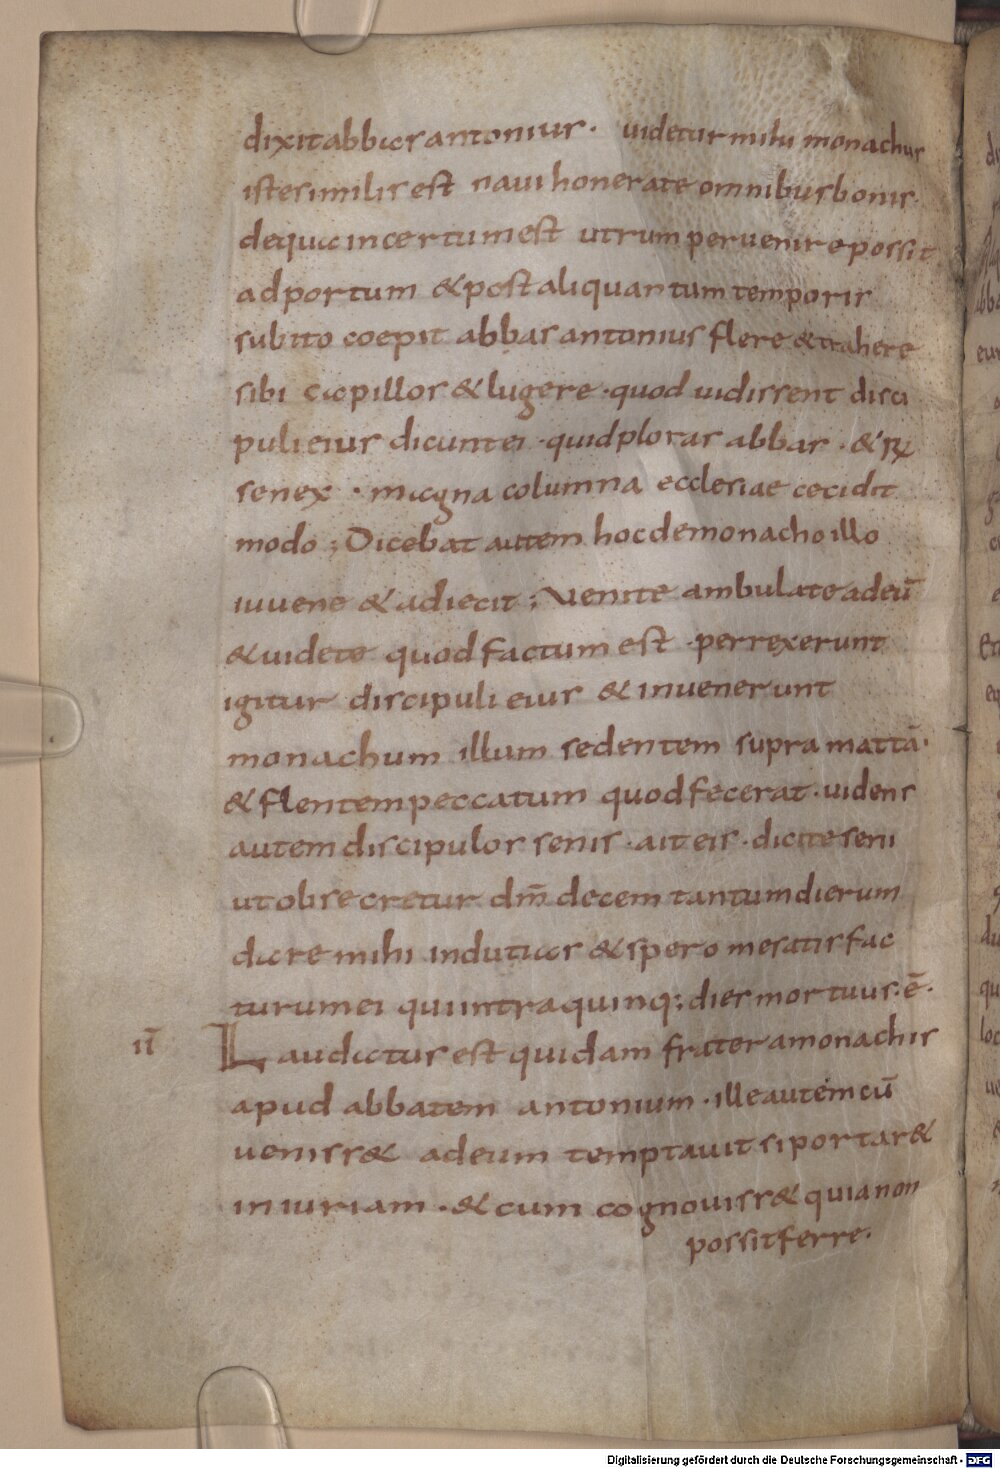 dixit abbas antonius · uidetur mihi monachus
iste similis est naui honerate omnibus bonis ·
de qua incertum est utrum peruenire possit
ad portum & post aliquantum temporis
subito coepit abbas antonius flere & trahere
sibi capillos & lugere · quod uidissent disci
puli eius dicunt ei · quid ploras abbas · & R̷
senex · magna columna ecclesiae cecidit
modo ; Dicebat autem hoc de monacho illo
iuuene & adiecit ; Venite ambulate ad eū
& uidete quod factum est · perrexerunt
igitur discipuli eius & inuenerunt
monachum illum sedentem supra mattā ·
& flentem peccatum quod fecerat · uidens
autem discipulos senis · ait eis · dicite seni
ut obsecretur dm̄ decem tantum dierum
dare mihi indutias & spero me satisfac
turum ei qui intra quinq; dies mortuus · ē ·
II Laudatus est quidam frater a monachis
apud abbatem antonium · ille autem cū
uenisset ad eum temptauit si portar&
iniuriam · & cum cognouiss& quia non
possit ferre ·
Digitalisierung gefördert durch die Deutsche Forschungsgemeinschaft - DFG